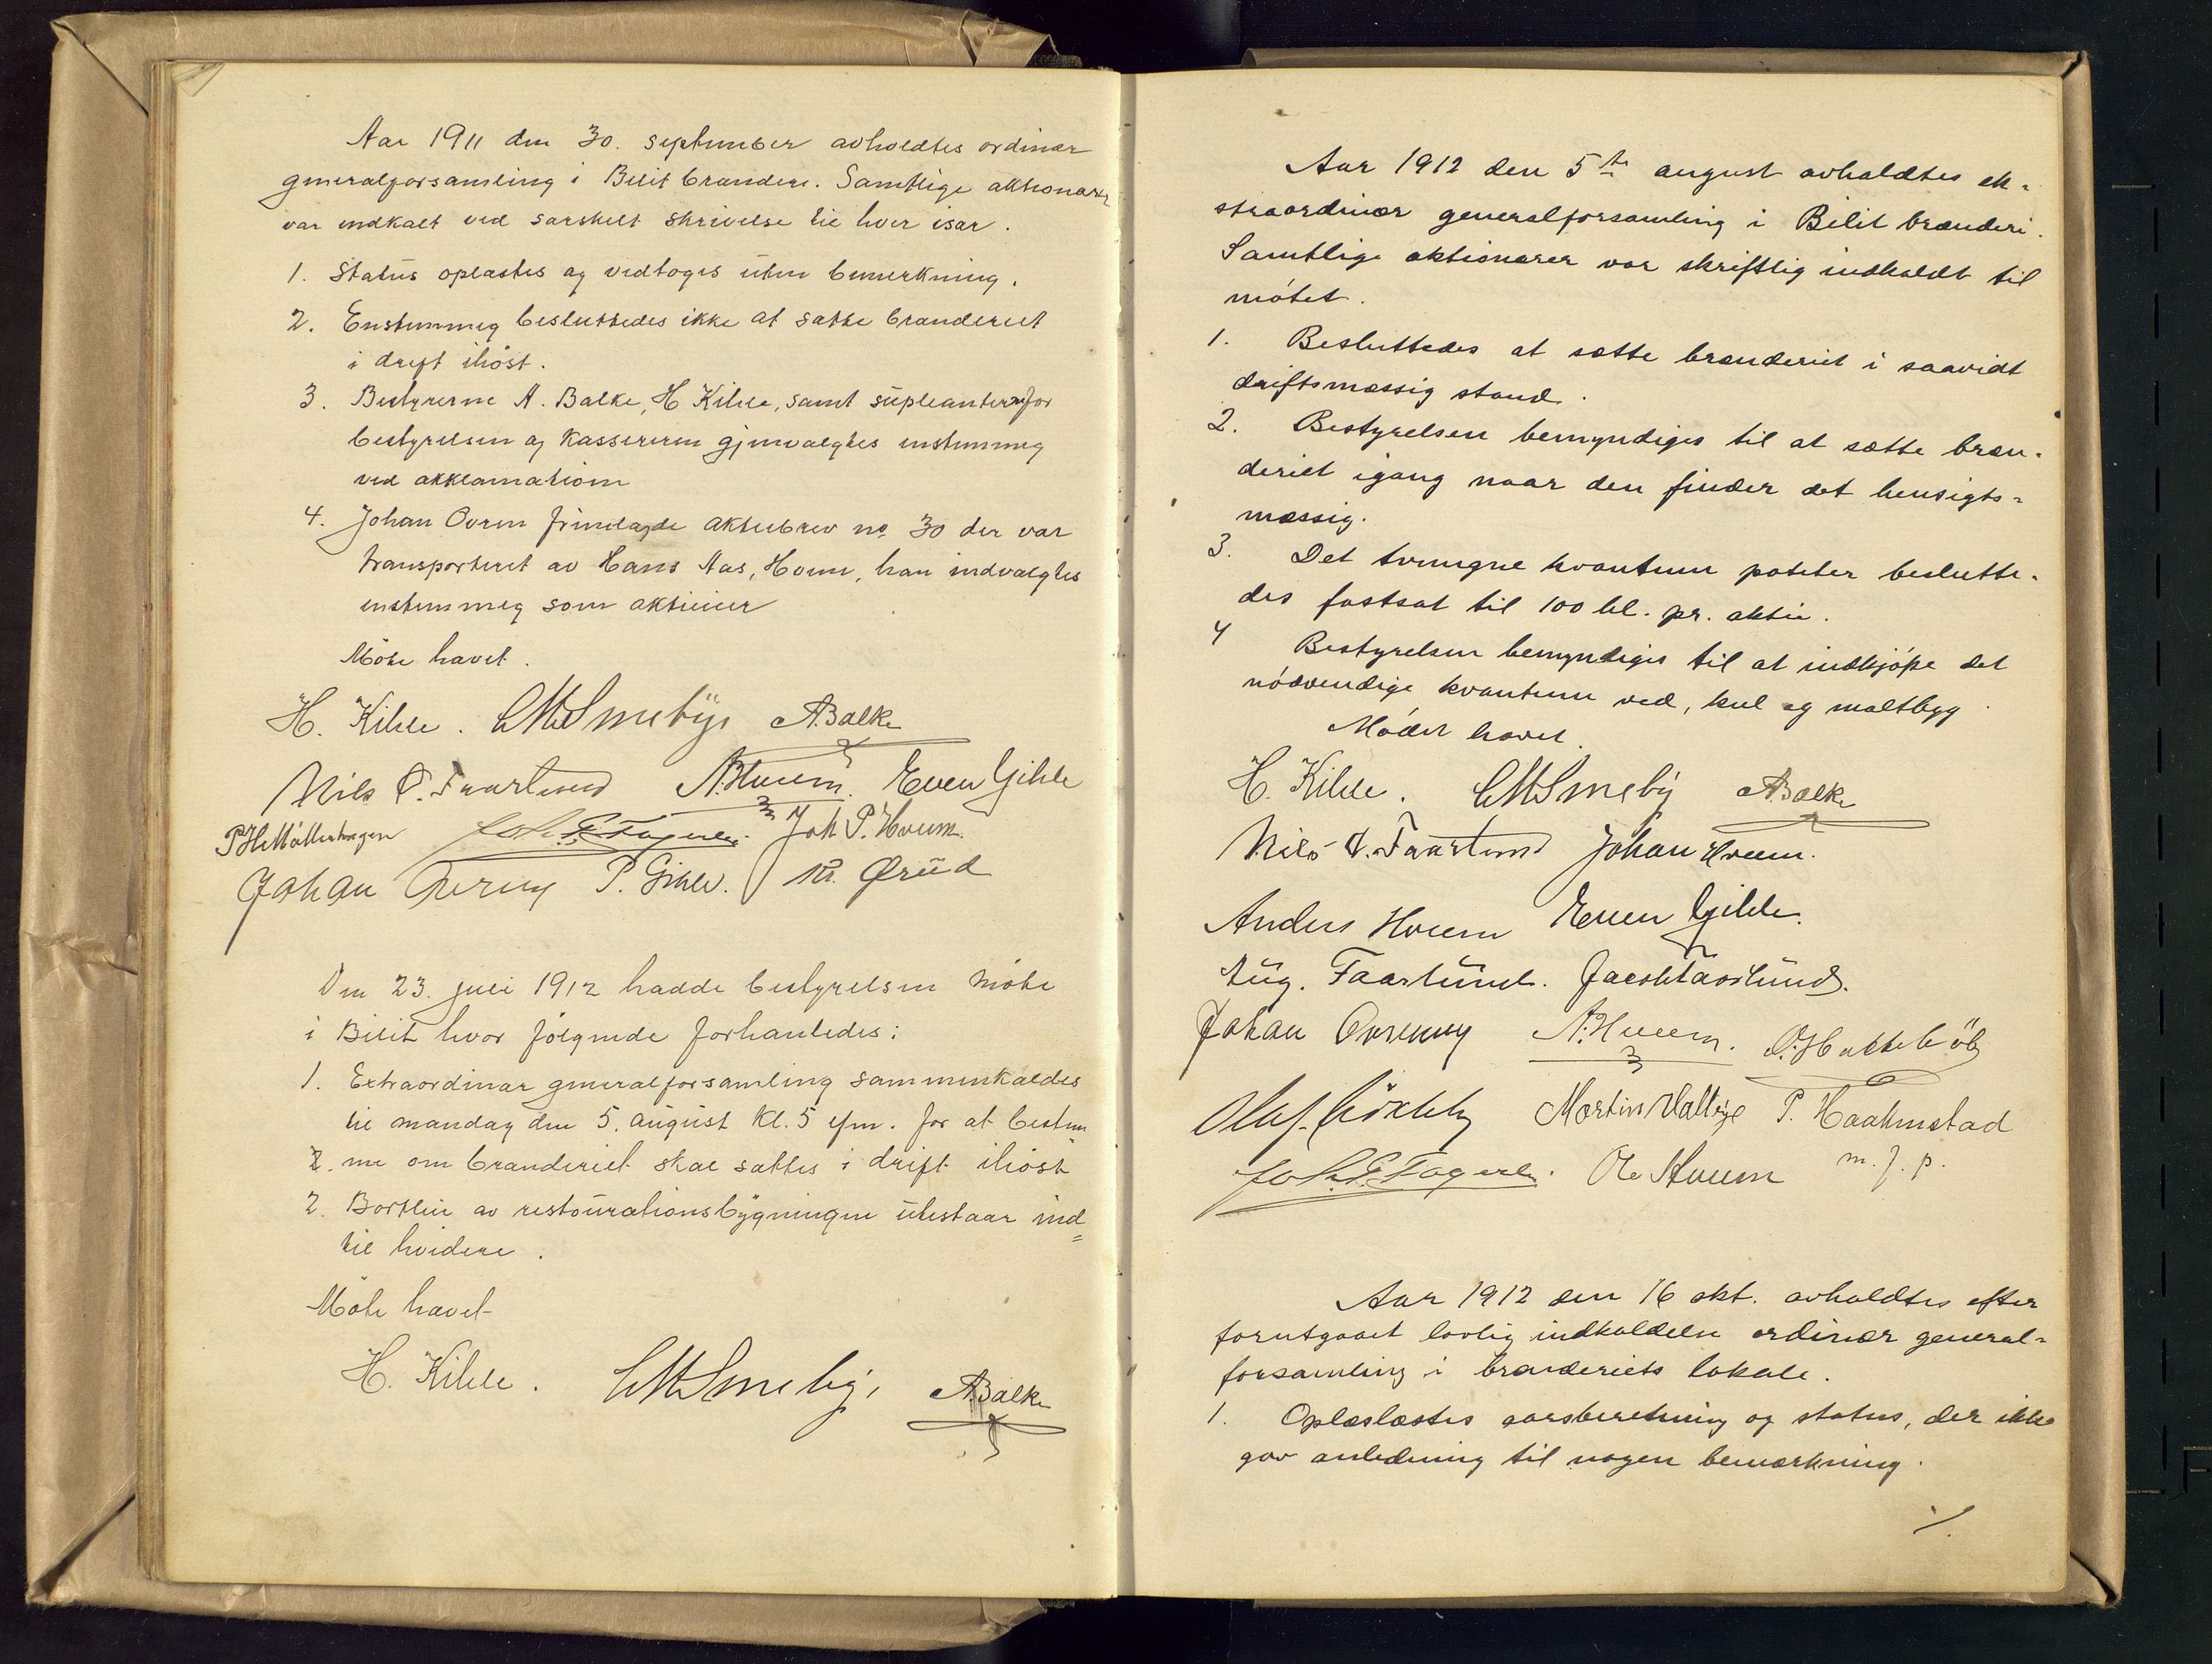 Aar 1911 den 30. september avholdtes ordinær
generalforsamling i Bilit brænderi. Samtlige aktionærer
var indkalt ved særskilt skrivelse til hver især.
1. Status oplæstes og vedtoges uten bemerkning.
2. Enstemmig besluttedes ikke at sætte brænderiet
i drift ihöst.
3. Bestyrerne A. Balke, H Kihle, samt supleanter for
bestyrelsen og kassereren gjenvalgtes enstemmig
ved akklamation
4. Johan Ovren fremlagde aktiebrev no 30 der var
transporteret av Hans Aas, Hoem, han indvalgtes
enstemmig som aktieier
Möte hævet.
H. Kihle. CM Smeby A Balke
Nils P. Faarlund A. Hveem. Even Gihle
P H Mötterhagen Joh. E. Fagerli. Joh P. Hveem.
Johan Overen P. Gihle. Kr. Ørud
Den 23. juli 1912 hadde bestyrelsen möte
i Bilit hvor fölgende forhanledes:
1. Extraordinær generalforsamling sammenkaldes
til mandag den 5. august Kl. 5 efm. for at bestem
2. me om brænderiet skal sættes i drift ihöst
2. Bortleie av restourationsbygningen utestaar ind=
til hvidere.
Möte hævet
H. Kihle. CM Smeby, A Balke
Aar 1912 den 5te august avholdtes ek=
straordinær generalforsamling i Bilit brænderi.
Samtlige aktionærer var skriftlig indkaldt til
mötet.
1. Besluttedes at sætte brænderiet i saavidt
driftsmæssig stand.
2. Bestyrelsen bemyndiges til at sætte bræn=
deriet igang naar den finder det hensigts=
mæssig.
3. Det tvungne kvantum poteter beslutte=
des fastsat til 100 hl. pr. aktie.
4 Bestyrelsen bemyndiges til at indkjöpe det
nödvendige kvantum ved, kul og maltbyg.
Mödet hævet.
H. Kihle. CM Smeby A Balke
Nils P. Faarlund Johan Hveem.
Anders Hveem Even Gihle.
Aug. Faarlund. Jacob Faarlund.
Johan Overen A. Hveem. O. Hattebøl
Olaf Martin Valle P. Haakenstad
Joh. E. Fagerli. Ole Hveem m. f. p.
Aar 1912 den 16 okt. avholdtes efter
forutgaaet lovlig indkaldelse ordinær general=
forsamling i brænderiets lokale.
1. Oplæslæstes aarsberetning og status, der ikke
gav anledning til nogen bemærkning.
./.